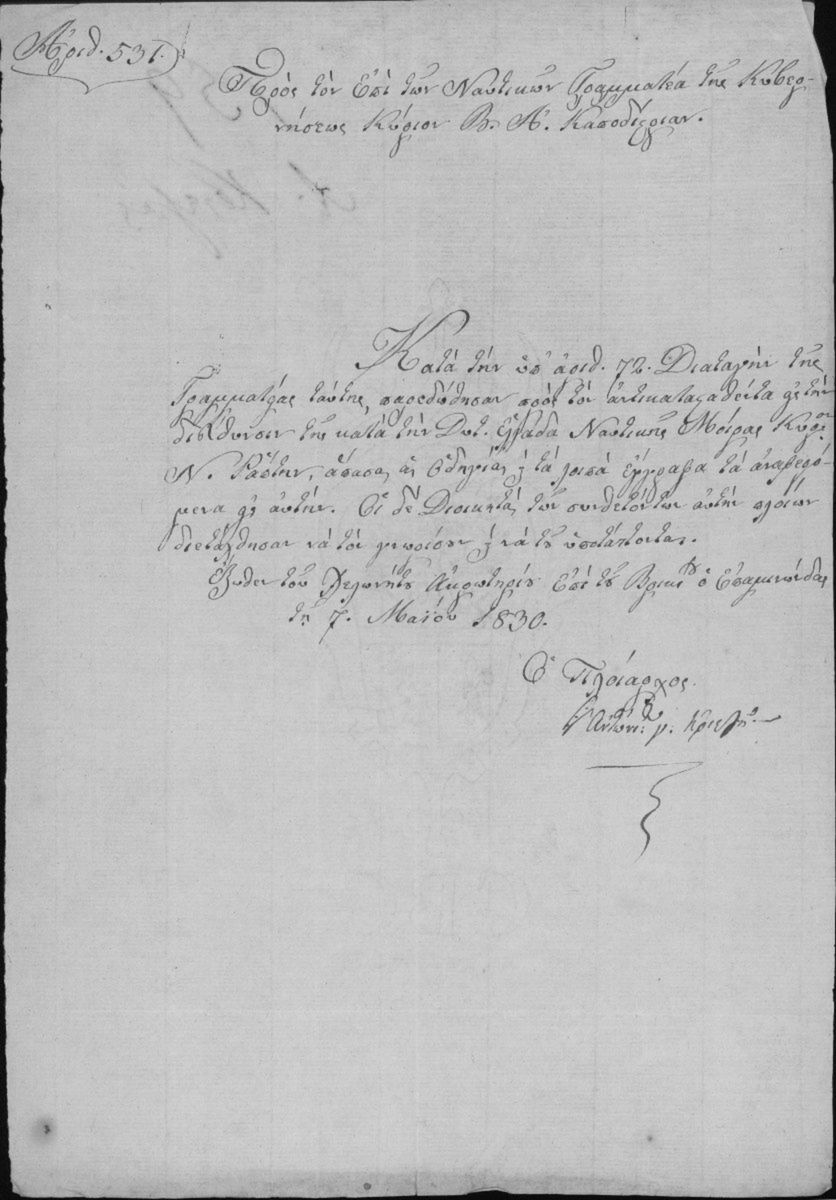 Ἀριθ. 531.
Πρὸς τὸν ἐπὶ τῶν Ναυτικῶν Γραμματέα τῆς Κυβερ-
νήσεως Κύριον Β. Α. Καποδίστριαν.
Κατὰ τὴν ὑπ' ἀριθ. 72. Διαταγὴν τῆς
Γραμματείας ταύτης, παρεδόθησαν πρὸς τὸν ἀντικατασταθέντα εἰς τὴν
διεύθυνσιν τῆς κατὰ τὴν Δυτ. Ἑλλάδα Ναυτικῆς Μοίρας Κύριον
Ν. ἅπασαι αἱ ὁδηγίαι καὶ τὰ λοιπὰ ἔγγραφα τὰ ἀναφερό-
μενα εἰς αὐτήν. Οἱ δὲ Διοικηταὶ τῶν συνθετόντων αὐτὴν πλοίων
διετάχθησαν νὰ τὸν γνωρίσουν καὶ νὰ τοῦ ὑποτάττονται.
Ἔξωθεν τοῦ Χελωνήτου Ἀκρωτηρίου Ἐπὶ τοῦ Βρικίου ὁ Ἐπαμινώνδας
τῇ 7. Μαΐου 1830.
Ὁ Πλοίαρχος
Ἀντών: Γ. Κριεζῆς